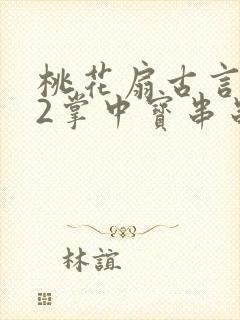 桃花扇古言
2掌中寳串
林誼